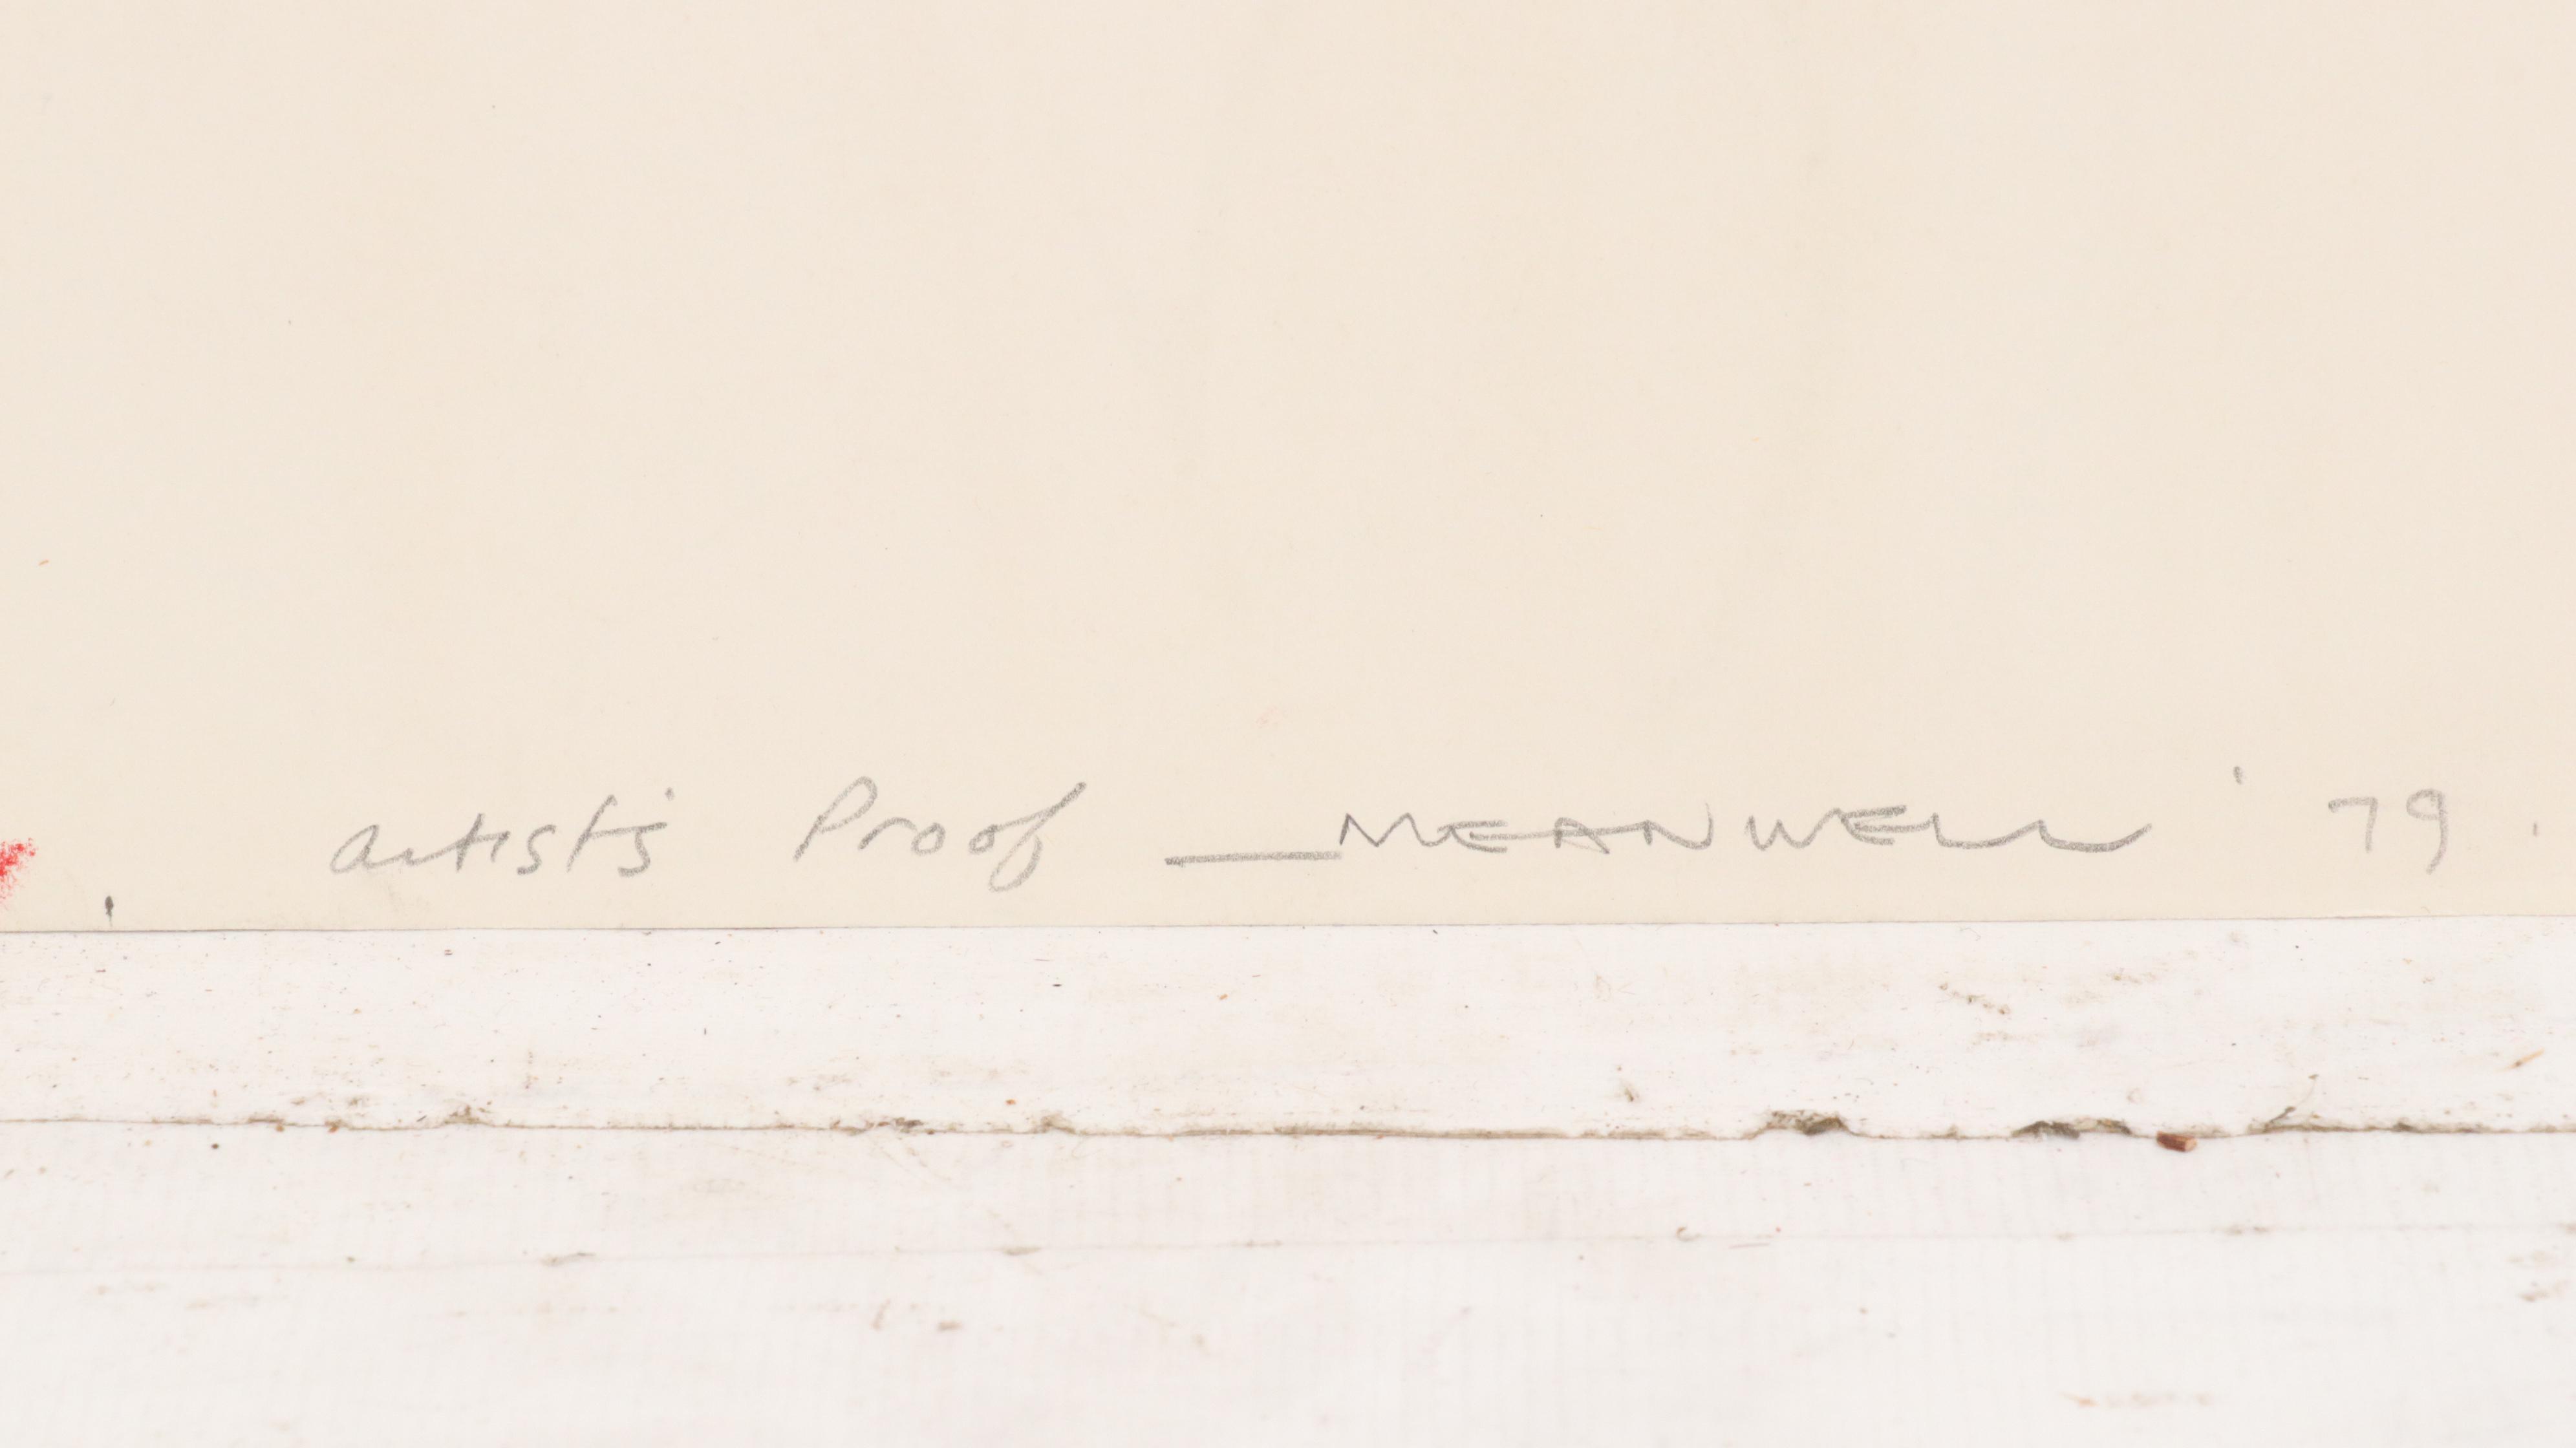 artist's Proof — MEANWELL '79.